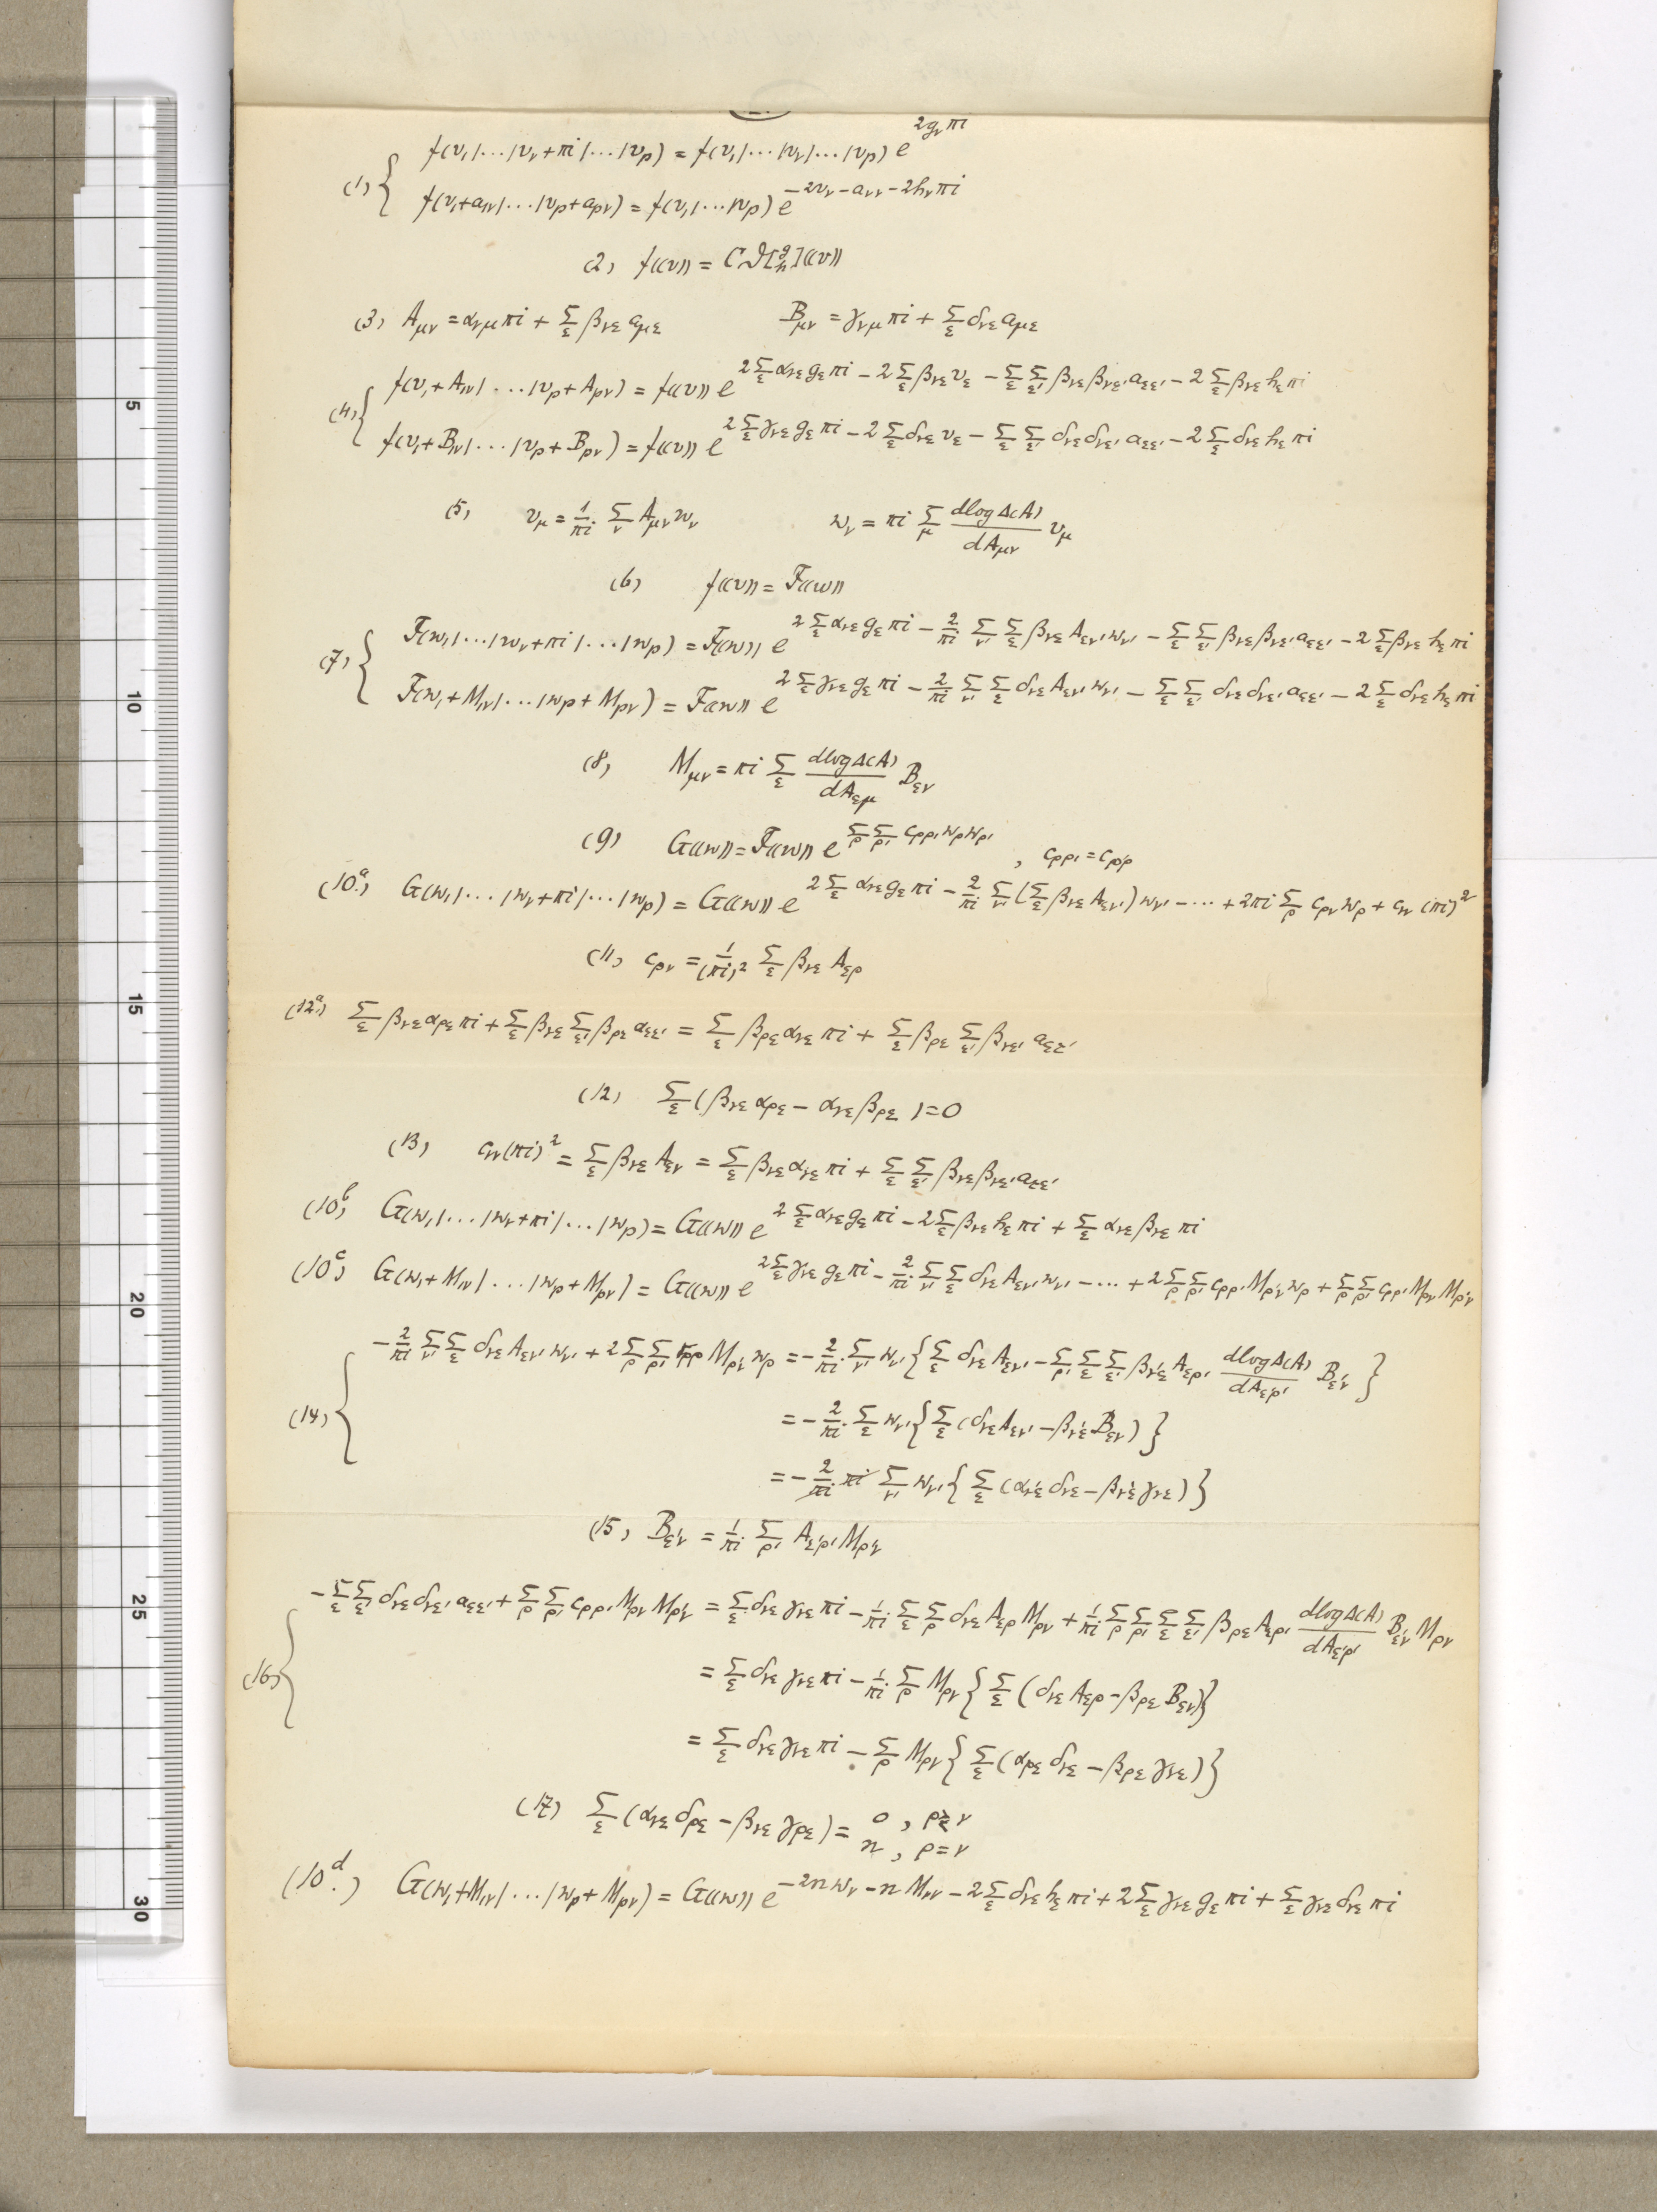 (1) { f(v₁|...|v_ν+πi|...|v_p) = f(v₁|...|v_ν|...|v_p) e^{2g_ν πi}
f(v₁+a_{1ν}|...|v_p+a_{pν}) = f(v₁|...|v_p) e^{-2v_ν - a_{νν} - 2h_ν πi}
(2) f((v)) = C ϑ[^g_h]((v))
(3) A_{μν} = α_{νμ} πi + Σ_ε β_{νε} a_{με}   B_{μν} = γ_{νμ} πi + Σ_ε δ_{νε} a_{με}
(4) { f(v₁+A_{1ν}|...|v_p+A_{pν}) = f((v)) e^{2Σ_ε α_{νε} g_ε πi - 2Σ_ε β_{νε} v_ε - Σ_ε Σ_{ε'} β_{νε} β_{νε'} a_{εε'} - 2Σ_ε β_{νε} h_ε πi}
f(v₁+B_{1ν}|...|v_p+B_{pν}) = f((v)) e^{2Σ_ε γ_{νε} g_ε πi - 2Σ_ε δ_{νε} v_ε - Σ_ε Σ_{ε'} δ_{νε} δ_{νε'} a_{εε'} - 2Σ_ε δ_{νε} h_ε πi}
(5) v_μ = 1/πi Σ_ν A_{μν} w_ν   w_ν = πi Σ_μ dlogΔ(A)/dA_{μν} v_μ
(6) f((v)) = F((w))
(7) { F(w₁|...|w_ν+πi|...|w_p) = F((w)) e^{2Σ_ε α_{νε} g_ε πi - 2/πi Σ_{ν'} Σ_ε β_{νε} A_{εν'} w_{ν'} - Σ_ε Σ_{ε'} β_{νε} β_{νε'} a_{εε'} - 2Σ_ε β_{νε} h_ε πi}
F(w₁+M_{1ν}|...|w_p+M_{pν}) = F((w)) e^{2Σ_ε γ_{νε} g_ε πi - 2/πi Σ_{ν'} Σ_ε δ_{νε} A_{εν'} w_{ν'} - Σ_ε Σ_{ε'} δ_{νε} δ_{νε'} a_{εε'} - 2Σ_ε δ_{νε} h_ε πi}
(8) M_{μν} = πi Σ_ε dlogΔ(A)/dA_{εμ} B_{εν}
(9) G((w)) = F((w)) e^{Σ_ρ Σ_{ρ'} c_{ρρ'} w_ρ w_{ρ'}}, c_{ρρ'} = c_{ρ'ρ}
(10.ᵃ) G(w₁|...|w_ν+πi|...|w_p) = G((w)) e^{2Σ_ε α_{νε} g_ε πi - 2/πi Σ_{ν'} (Σ_ε β_{νε} A_{εν'}) w_{ν'} - ... + 2πi Σ_ρ c_{ρν} w_ρ + c_{νν} (πi)²}
(11) c_{ρν} = 1/(πi)² Σ_ε β_{νε} A_{ερ}
(12.ᵃ) Σ_ε β_{νε} α_{ρε} πi + Σ_ε β_{νε} Σ_{ε'} β_{ρε'} a_{εε'} = Σ_ε β_{ρε} α_{νε} πi + Σ_ε β_{ρε} Σ_{ε'} β_{νε'} a_{εε'}
(12) Σ_ε (β_{νε} α_{ρε} - α_{νε} β_{ρε}) = 0
(13) c_{νν}(πi)² = Σ_ε β_{νε} A_{εν} = Σ_ε β_{νε} α_{νε} πi + Σ_ε Σ_{ε'} β_{νε} β_{νε'} a_{εε'}
(10.ᵇ) G(w₁|...|w_ν+πi|...|w_p) = G((w)) e^{2Σ_ε α_{νε} g_ε πi - 2Σ_ε β_{νε} h_ε πi + Σ_ε α_{νε} β_{νε} πi}
(10.ᶜ) G(w₁+M_{1ν}|...|w_p+M_{pν}) = G((w)) e^{2Σ_ε γ_{νε} g_ε πi - 2/πi Σ_{ν'} Σ_ε δ_{νε} A_{εν'} w_{ν'} - ... + 2Σ_ρ Σ_{ρ'} c_{ρρ'} M_{ρ'ν} w_ρ + Σ_ρ Σ_{ρ'} c_{ρρ'} M_{ρν} M_{ρ'ν}}
(14) { -2/πi Σ_{ν'} Σ_ε δ_{νε} A_{εν'} w_{ν'} + 2Σ_ρ Σ_{ρ'} c_{ρρ'} M_{ρ'ν} w_ρ = -2/πi Σ_{ν'} w_{ν'} {Σ_ε δ_{νε} A_{εν'} - Σ_{ρ'} Σ_ε Σ_{ε'} β_{ν'ε} A_{ερ'} dlogΔ(A)/dA_{ε'ρ'} B_{ε'ν}}
= -2/πi Σ_ε w_{ν'} {Σ_ε (δ_{νε} A_{εν'} - β_{ν'ε} B_{εν})}
= -2/πi πi Σ_{ν'} w_{ν'} {Σ_ε (α_{ν'ε} δ_{νε} - β_{ν'ε} γ_{νε})}
(15) B_{ε'ν} = 1/πi Σ_{ρ'} A_{ε'ρ'} M_{ρ'ν}
(16) { -Σ_ε Σ_{ε'} δ_{νε} δ_{νε'} a_{εε'} + Σ_ρ Σ_{ρ'} c_{ρρ'} M_{ρν} M_{ρ'ν} = Σ_ε δ_{νε} γ_{νε} πi - 1/πi Σ_ε Σ_ρ δ_{νε} A_{ερ} M_{ρν} + 1/πi Σ_ρ Σ_{ρ'} Σ_ε Σ_{ε'} β_{ρε} A_{ερ'} dlogΔ(A)/dA_{ε'ρ'} B_{ε'ν} M_{ρν}
= Σ_ε δ_{νε} γ_{νε} πi - 1/πi Σ_ρ M_{ρν} {Σ_ε (δ_{νε} A_{ερ} - β_{ρε} B_{εν})}
= Σ_ε δ_{νε} γ_{νε} πi - Σ_ρ M_{ρν} {Σ_ε (α_{ρε} δ_{νε} - β_{ρε} γ_{νε})}
(17) Σ_ε (α_{νε} δ_{ρε} - β_{νε} γ_{ρε}) = 0, ρ≷ν
n, ρ=ν
(10.ᵈ) G(w₁+M_{1ν}|...|w_p+M_{pν}) = G((w)) e^{-2n w_ν - n M_{νν} - 2Σ_ε δ_{νε} h_ε πi + 2Σ_ε γ_{νε} g_ε πi + Σ_ε γ_{νε} δ_{νε} πi}
5
10
15
20
25
30